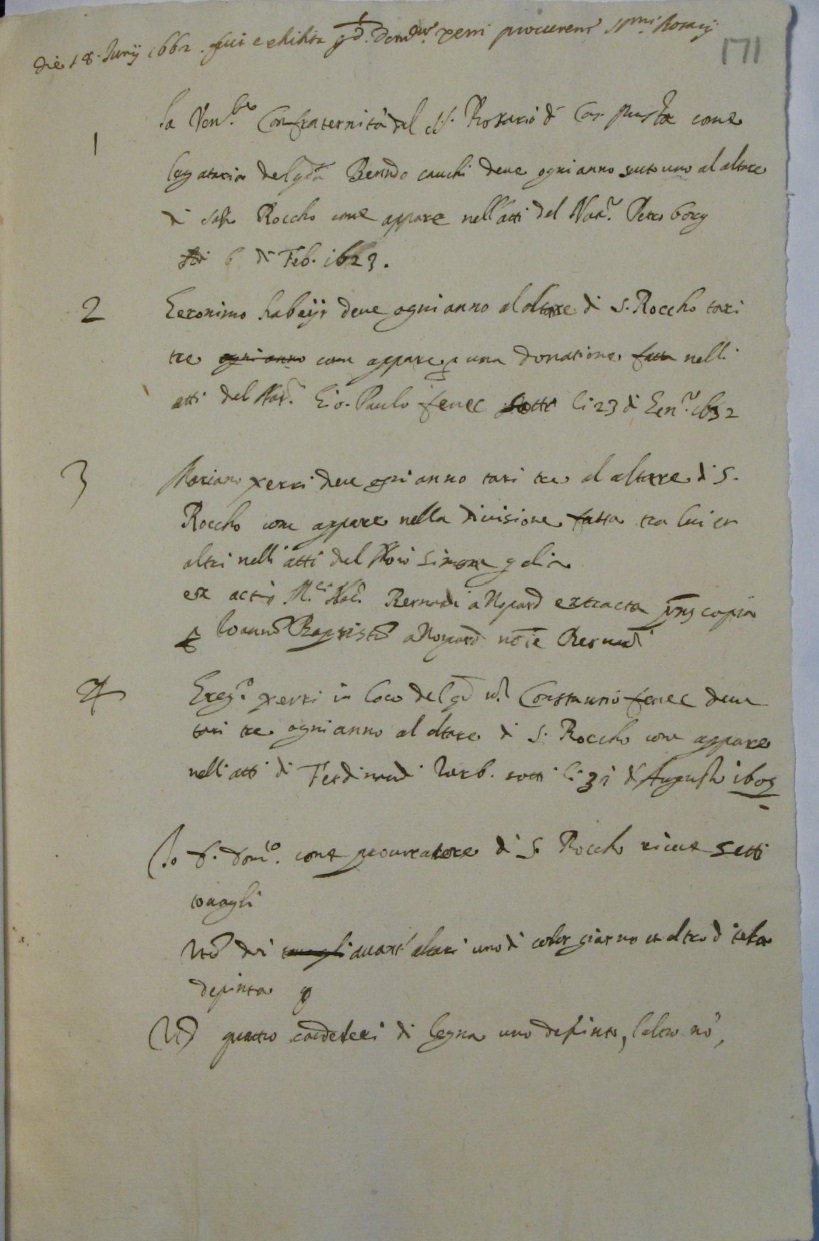 die 18 Junij 1662 fuit exhibita p D. Domcus xerri procurem SSmi Rosarij
171
1 La Venle Confraternità del SS. Rosario di Cas come
legataria del qd Berndo cauchi deve ogni anno scuto uno al altare
di San Roccho come appare nell'atti del Nar. Petro borg
6 di Feb. 1623.
2 Geronimo habeijr deve ogni anno al altare di S. Roccho tari
tre ogni anno come appare p una donatione fatta nelli
atti del Nar. Gio. Paulo fenec sotto li 23 di Gen.ro 1632
3 Mariano xerri deve ogni anno tari tre al altare di S.
Roccho come appare nella divisione fatta tra lui et
altri nelli atti del Noro Simone gelia
ex actis M.ci Not. Bernardi extracta pns copia
Joanne Baptista
4 Greg.o xerri in loco del qd Constantio fenec deve
tari tre ogni anno al altare di S. Roccho come appare
nelli atti di Ferdinandi sotto li 31 di Augusto 1605
Io D. Dom.co come procuratore di S. Roccho riceve setti
tovagli
It dui tovagli avant' altari uno di color giarno et altro di tela
depinta
It quatro candeleri di legna uno depinto, l'altro no,